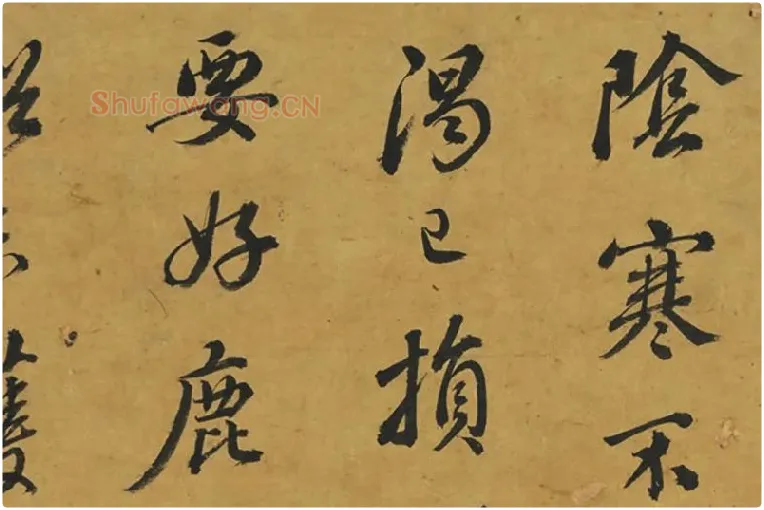 陰寒不
渴已損
要好鹿
Shufawang.CN